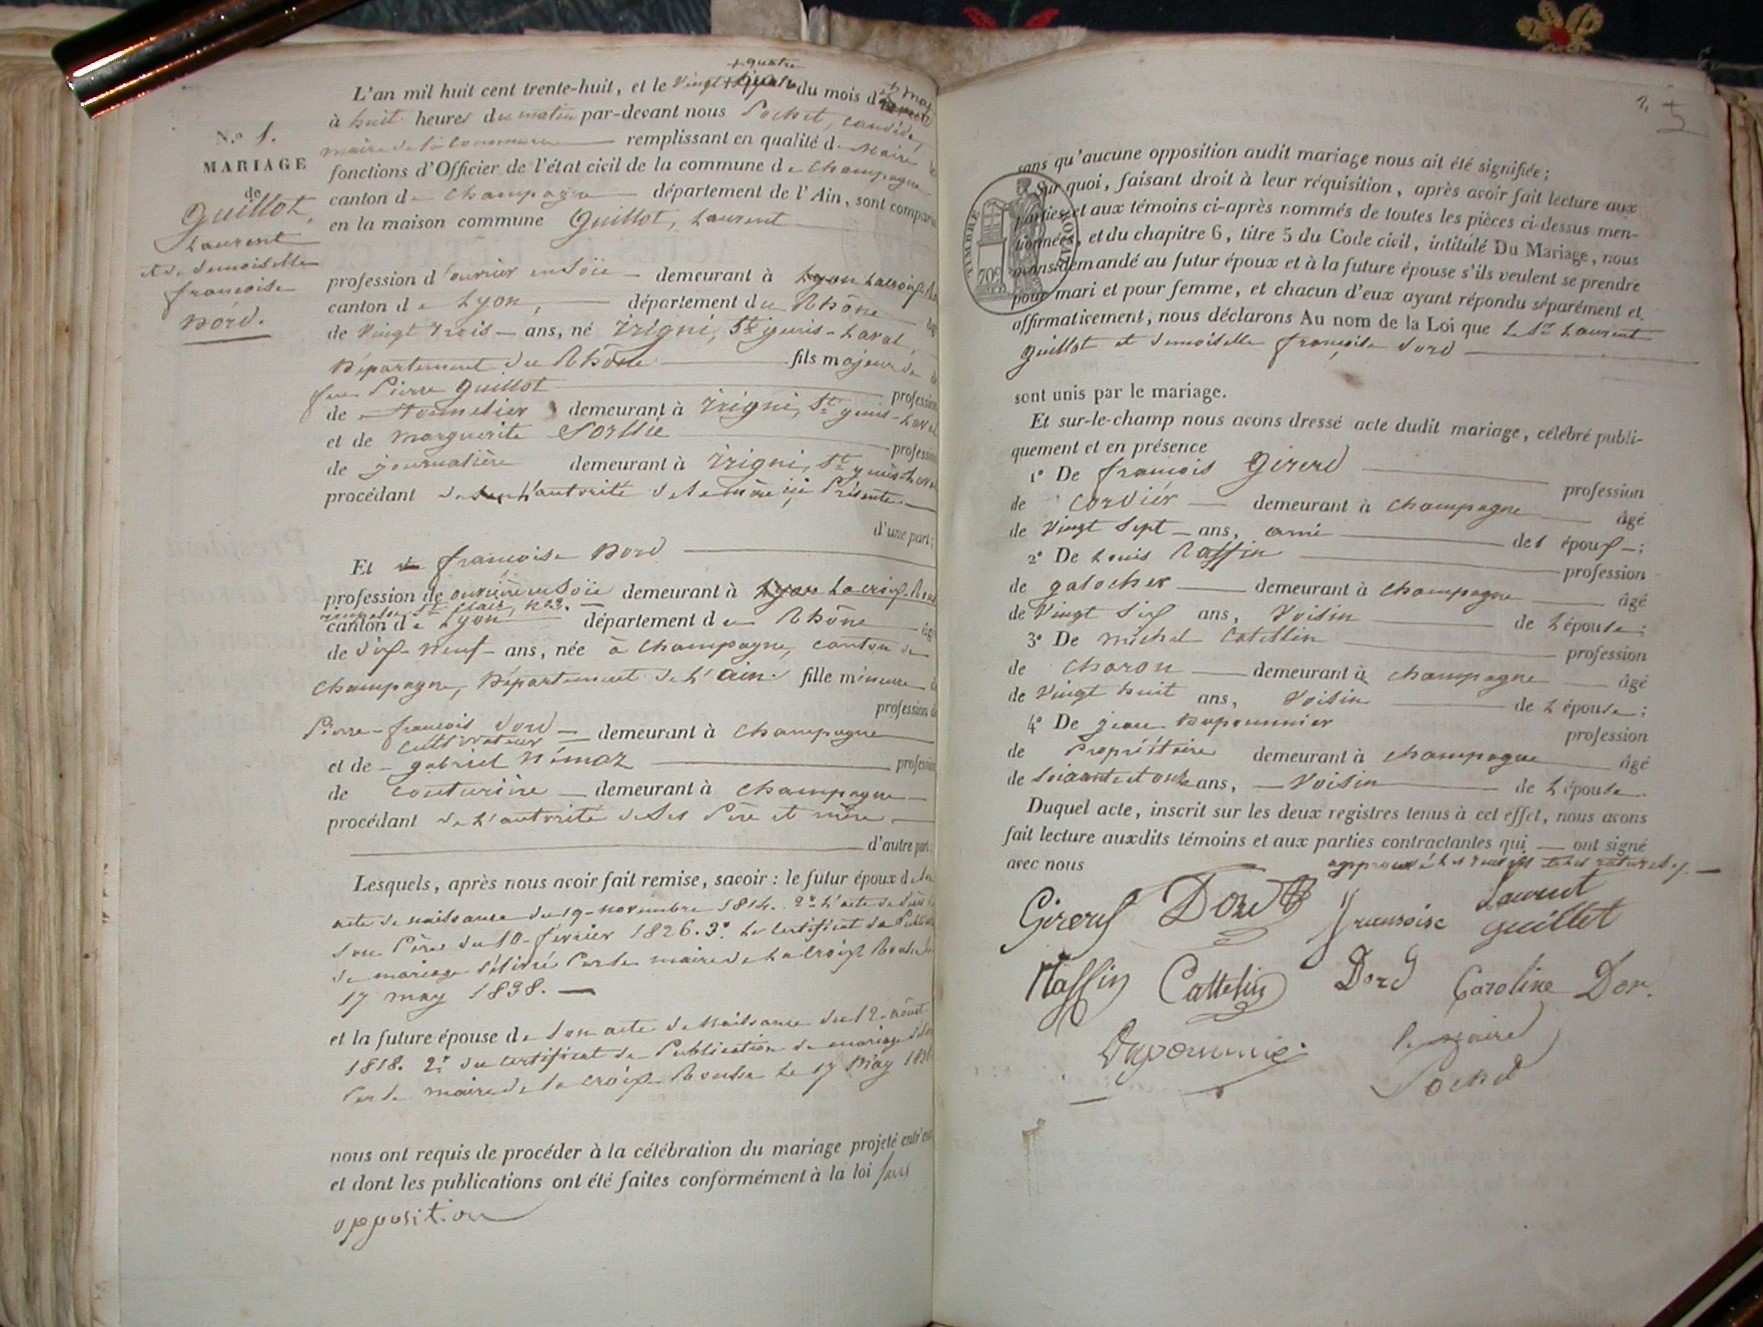 + quatre
L'an mil huit cent trente-huit, et le vingt + du mois d may
à huit heures du matin par-devant nous Pochet, candide,
maire de la Commune remplissant en qualité de Maire
fonctions d'Officier de l'état civil de la commune de Champagne
canton de Champagne département de l'Ain, sont comparu
en la maison commune Guillot, Laurent
N.o 1.
MARIAGE
de
Guillot,
Laurent
et de demoiselle
françoise
Dord.
profession d'ouvrier en Söie demeurant à Lyon Lacroix Rou
canton de Lyon, département du Rhône âgé
de vingt trois ans, né Irigni, St. genis-Laval,
Département du Rhône fils majeur de
feu Pierre Guillot profession
de tonnelier demeurant à Irigni, St. genis-Laval
et de marguerite profession
de journalière demeurant à Irigni, St. genis-Laval
procédant de l'autorité de Sa mère ici Présente
d'une part;
Et françoise Dord
profession de ouvrière en Söie demeurant à Lyon La croix-Rous
St. Clair, n 23.
canton de Lyon département du Rhône âgé
de dix-neuf ans, née à Champagne, canton de
Champagne, Département de L'Ain. fille mineure de
profession de
Pierre-françois Dord demeurant à Champagne
cultivateur
et de gabriel Némoz profession
de couturière demeurant à Champagne
procédant de L'autorité de Ses Père et mère
d'autre part:
Lesquels, après nous avoir fait remise, savoir: le futur époux de Son
acte de naissance du 19 novembre 1814. 2° L'acte de décès de
Son Père du 10 février 1826. 3° Le Certificat de Publication
de mariage délivré Par le maire de La Croix Rousse Le
17 may 1838.
et la future épouse de Son acte de Naissance du 12 août
1818. 2° du Certificat de Publication de mariage délivré
Par le maire de la Croix-Rousse Le 17 May 1838
nous ont requis de procéder à la célébration du mariage projeté entr'eux
et dont les publications ont été faites conformément à la loi Sans
opposition
2
sans qu'aucune opposition audit mariage nous ait été signifiée;
Sur quoi, faisant droit à leur réquisition, après avoir fait lecture aux
parties et aux témoins ci-après nommés de toutes les pièces ci-dessus men-
tionnées, et du chapitre 6, titre 5 du Code civil, intitulé Du Mariage, nous
avons demandé au futur époux et à la future épouse s'ils veulent se prendre
pour mari et pour femme, et chacun d'eux ayant répondu séparément et
affirmativement, nous déclarons Au nom de la Loi que Le Sr. Laurent
Guillot et demoiselle françoise Dord
TIMBRE ROYAL
70c
sont unis par le mariage.
Et sur-le-champ nous avons dressé acte dudit mariage, célébré publi-
quement et en présence
1° De françois Girerd
profession
de Cordier demeurant à Champagne âgé
de vingt Sept ans, ami de l époux;
2° De Louis Raffin
profession
de galocher demeurant à Champagne âgé
de Vingt Six ans, Voisin de L'épouse;
3° De michel Catellin
profession
de Charon demeurant à Champagne âgé
de vingt huit ans, Voisin de L'épouse;
4° De jean Dupommier
profession
de Propriétaire demeurant à Champagne âgé
de Soixante et onze ans, Voisin de L'épouse
Duquel acte, inscrit sur les deux registres tenus à cet effet, nous avons
fait lecture auxdits témoins et aux parties contractantes qui ont signé
avec nous
Girerd Dord françoise Laurent
guillot
Raffin Cattelin Dord Caroline Dor.
Dupommié. le maire
Pochet